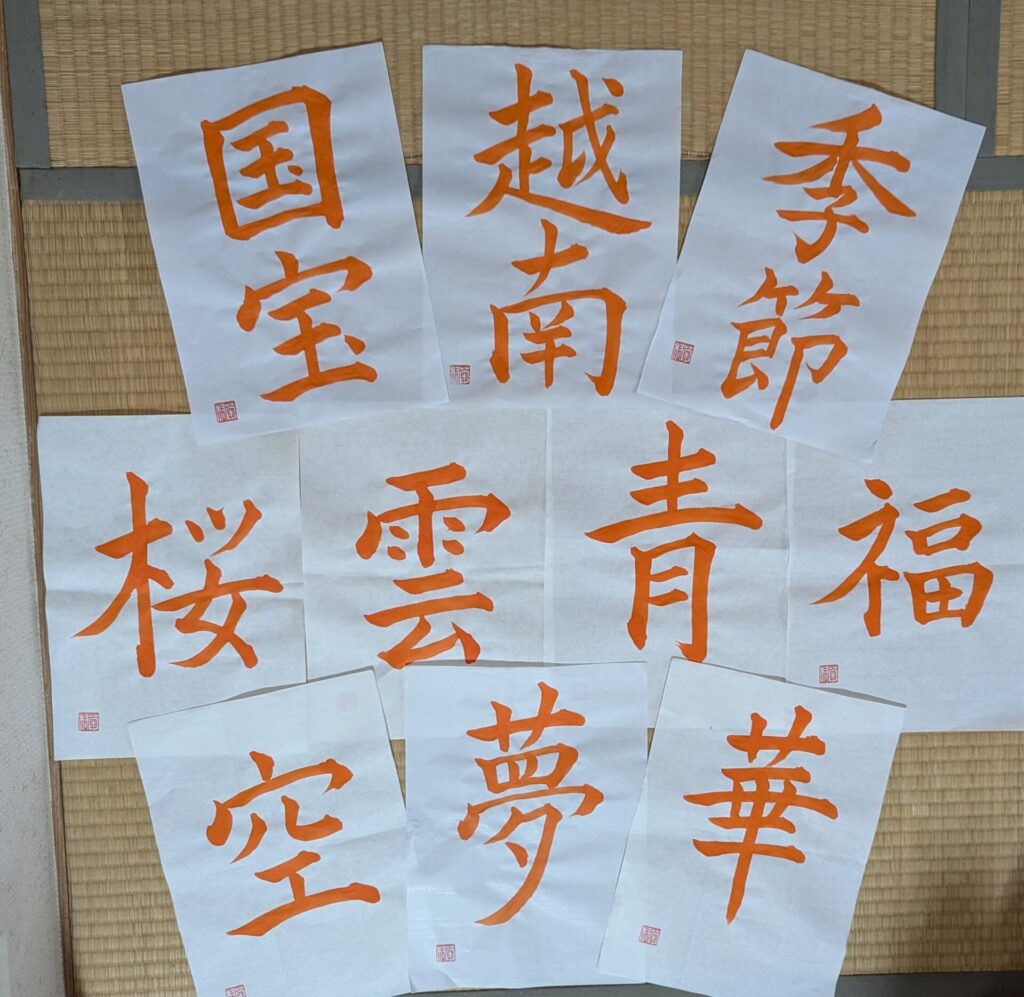 国宝
越南
季節
桜
雲
青
福
空
夢
華